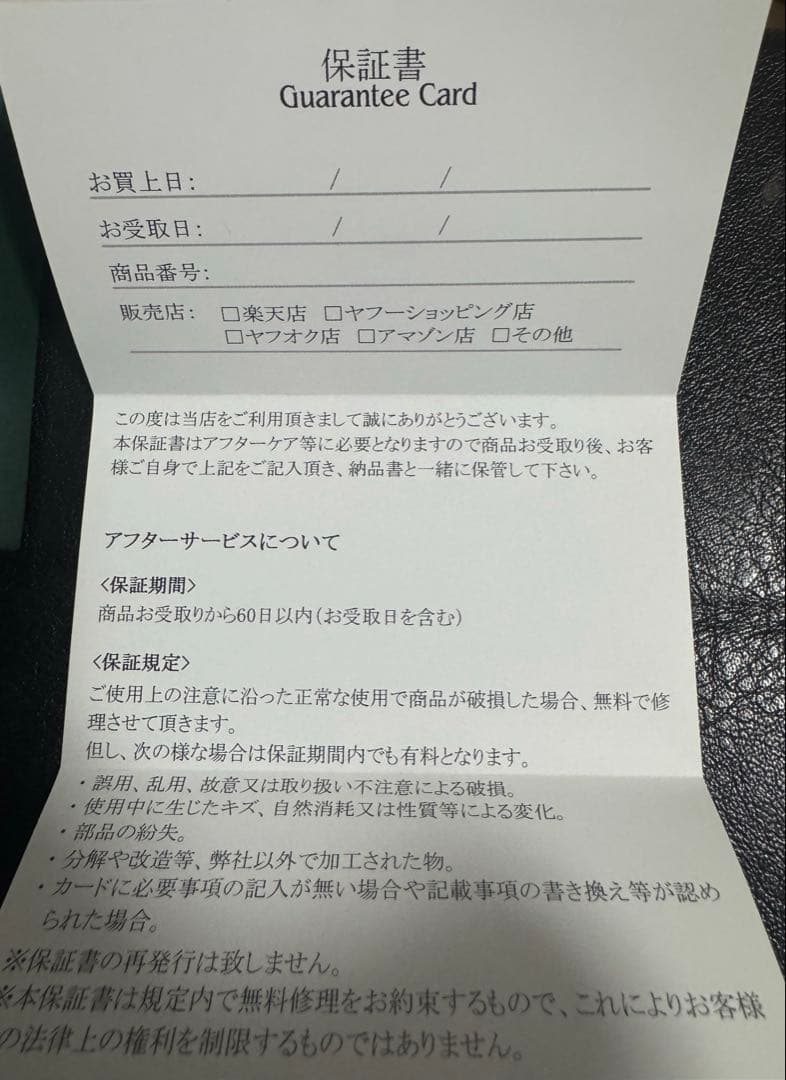 保証書
Guarantee Card
お買上日: / /
お受取日: / /
商品番号:
販売店: □楽天店 □ヤフーショッピング店
□ヤフオク店 □アマゾン店 □その他
この度は当店をご利用頂きまして誠にありがとうございます。
本保証書はアフターケア等に必要となりますので商品お受取り後、お客
様ご自身で上記をご記入頂き、納品書と一緒に保管して下さい。
アフターサービスについて
〈保証期間〉
商品お受取りから60日以内(お受取日を含む)
〈保証規定〉
ご使用上の注意に沿った正常な使用で商品が破損した場合、無料で修
理させて頂きます。
但し、次の様な場合は保証期間内でも有料となります。
・誤用、乱用、故意又は取り扱い不注意による破損。
・使用中に生じたキズ、自然消耗又は性質等による変化。
・部品の紛失。
・分解や改造等、弊社以外で加工された物。
・カードに必要事項の記入が無い場合や記載事項の書き換え等が認め
られた場合。
※保証書の再発行は致しません。
※本保証書は規定内で無料修理をお約束するもので、これによりお客様
の法律上の権利を制限するものではありません。